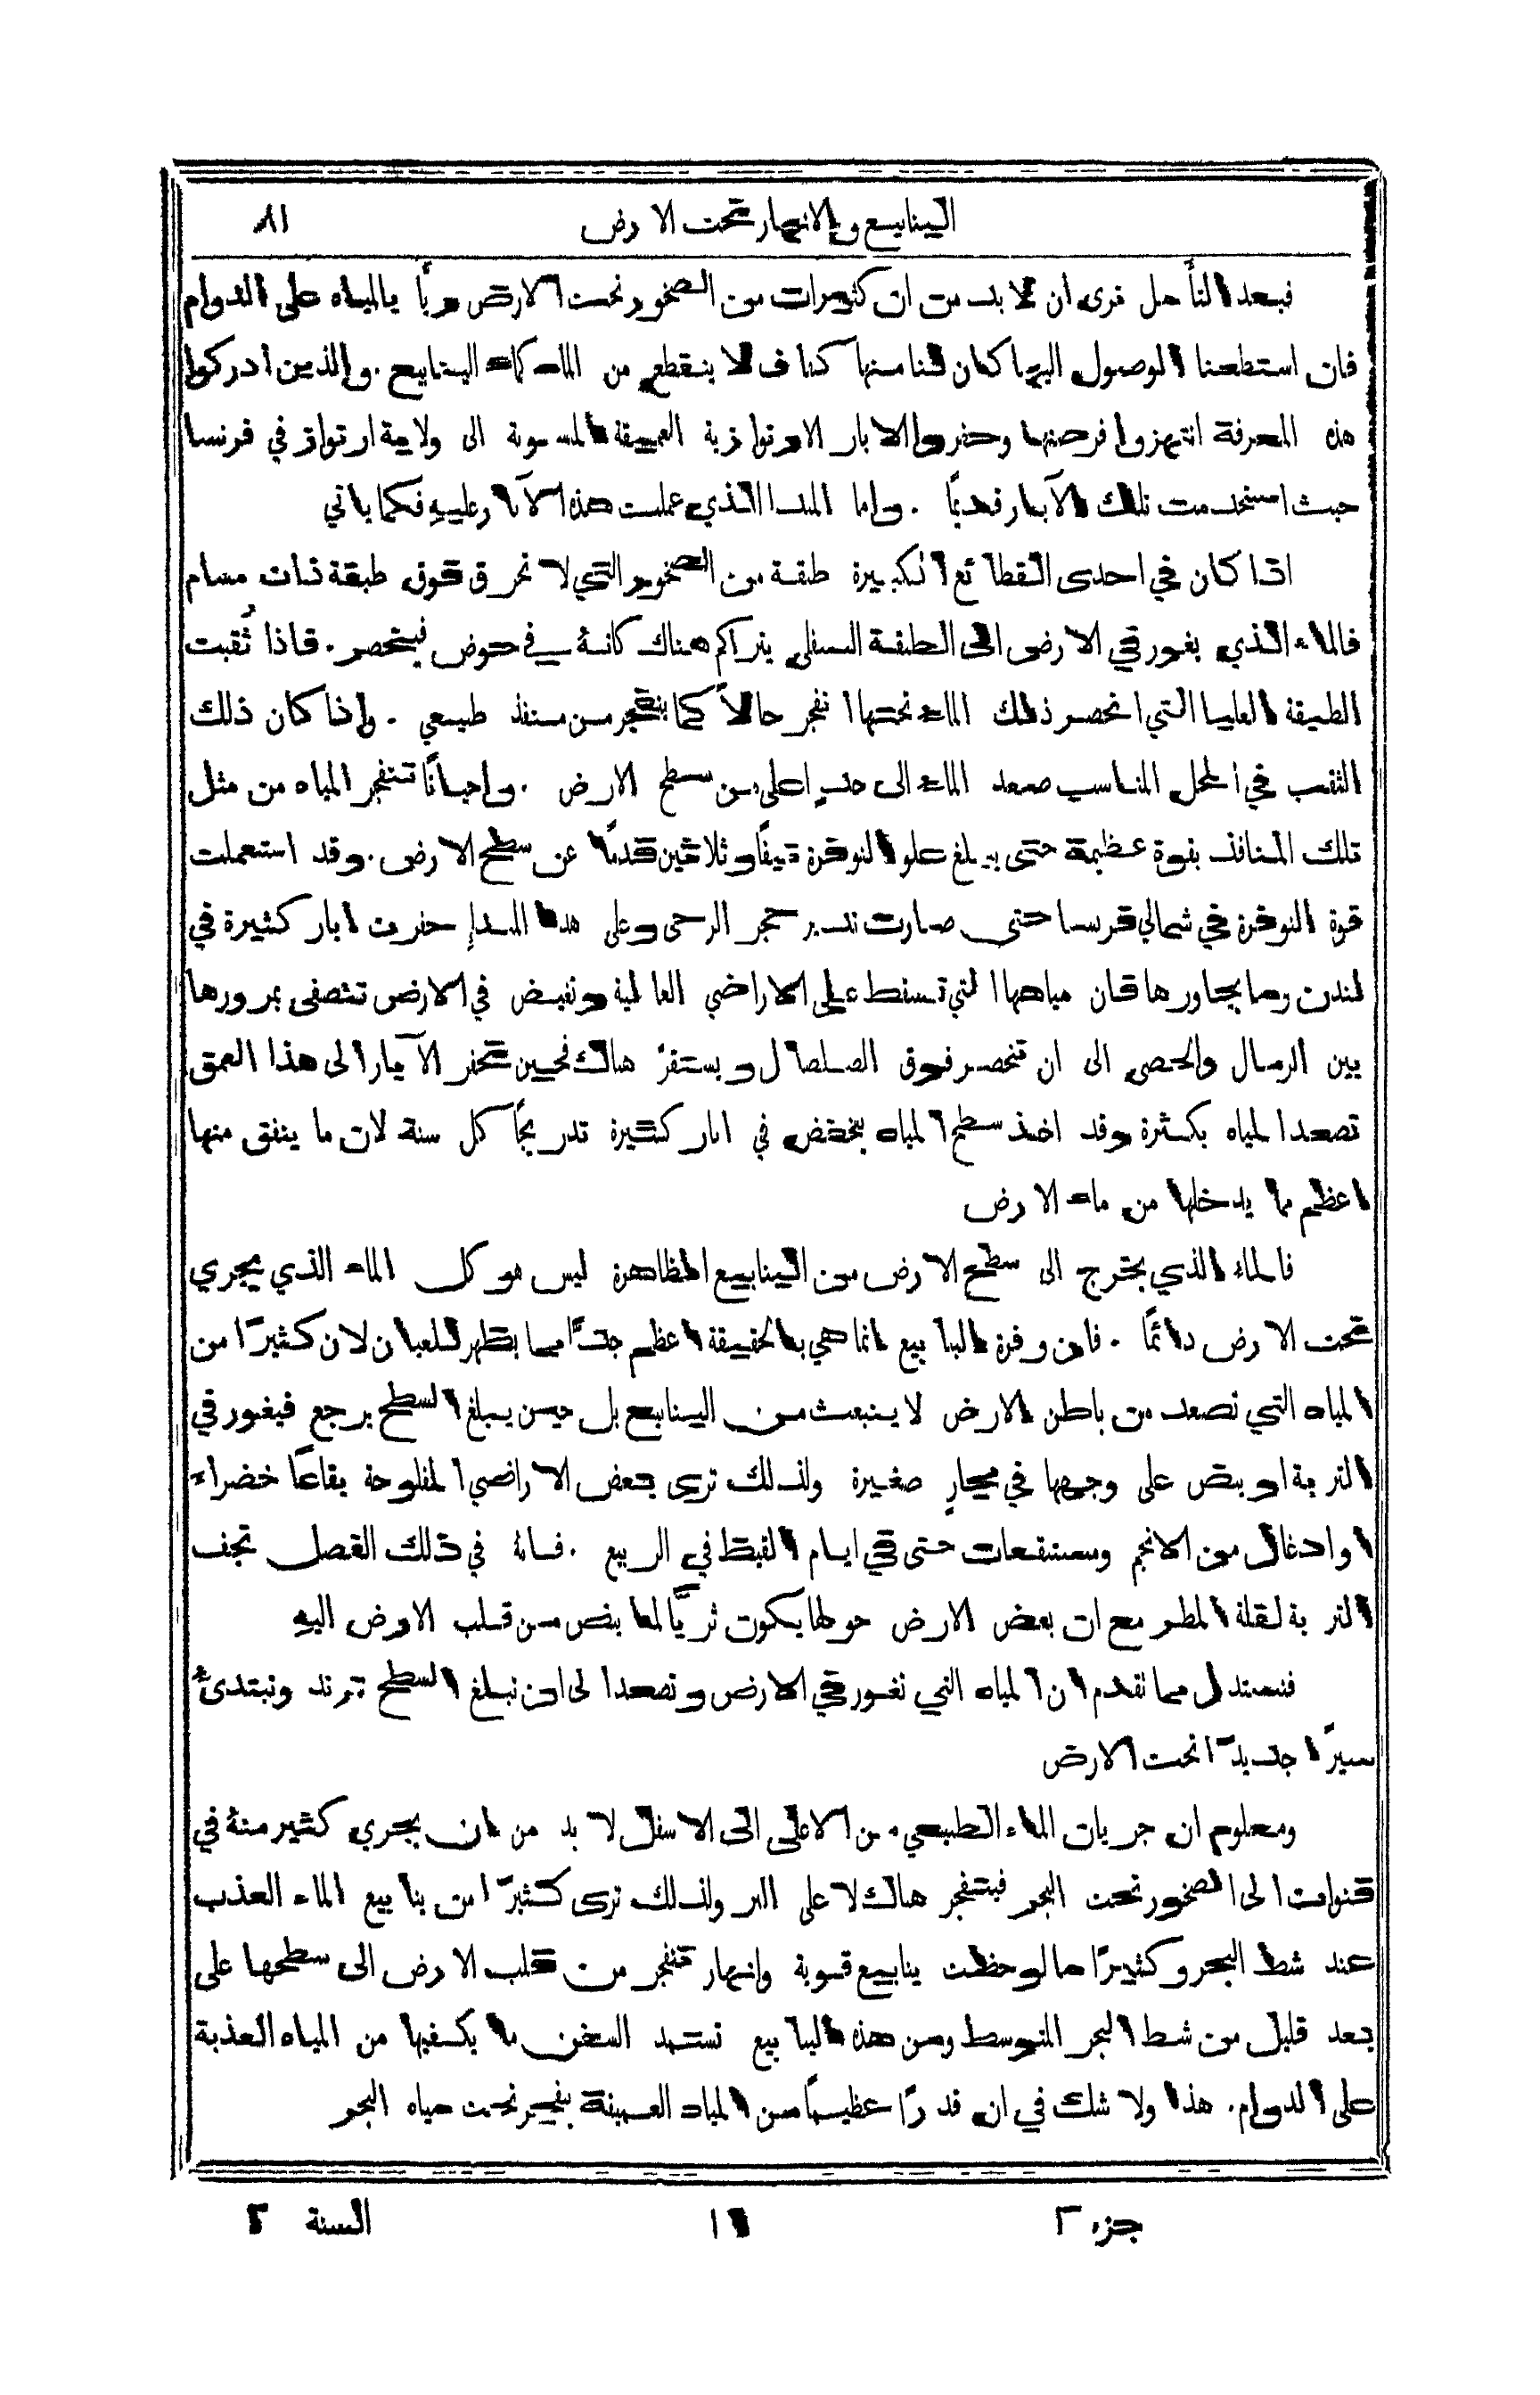 الينابيع والانهار تحت الارض ٨١
فبعد التأمل نرى ان لا بد من ان كثيرات من الصخور تحت الارض ريا بالمياه على الدوام
فان استطعنا الوصول اليها كان لنا منها كفاف لا ينقطع من الماء كماء الينابيع . والذين ادركوا
هذه المعرفة انتهزوا فرصتها وحفروا الابار الارتوازية العميقة المنسوبة الى ولاية ارتواز في فرنسا
حيث استخدمت تلك الآبار قديمًا . واما المبدا الذي عملت هذه الآبار عليهِ فكما ياتي
اذا كان في احدى القطائع الكبيرة طبقة من الصخور التي لا تخرق فوق طبقة ذات مسام
فالماء الذي يغور في الارض الى الطبقة السفلى يتراكم هناك كانهُ في حوض فينحصر . فاذا ثُقبت
الطبقة العليا التي انحصر ذلك الماء تحتها انفجر حالاً كما ينفجر من منفذ طبيعي . واذا كان ذلك
الثقب في المحل المناسب صعد الماء الى حدٍ اعلى من سطح الارض . واحيانًا تنفجر المياه من مثل
تلك المنافذ بقوة عظيمة حتى يبلغ علو النوفرة نيفًا وثلاثين قدمًا عن سطح الارض . وقد استعملت
قوة النوفرة في شمالي فرنسا حتى صارت تدير حجر الرحى وعلى هذا المبدإ حفرت ابار كثيرة في
لندن وما يجاورها فان مياهها التي تسقط على الاراضي العالية وتفيض في الارض تتصفى بمرورها
بين الرمال والحصى الى ان تنحصر فوق الصلصال ويستقرّ هناك فحين تحفر الآبار الى هذا العمق
تصعد المياه بكثرة وقد اخذ سطح المياه ينخفض في ابار كثيرة تدريجًا كل سنة لان ما ينفق منها
اعظم مما يدخلها من ماء الارض
فالماء الذي يخرج الى سطح الارض من الينابيع الظاهرة ليس هو كل الماء الذي يجري
تحت الارض دائمًا . فان وفرة الينابيع انما هي بالحقيقة اعظم جدًّا مما يظهر للعيان لان كثيرًا من
المياه التي تصعد من باطن الارض لا ينبعث من الينابيع بل حين يبلغ السطح يرجع فيغور في
التربة او ينض على وجهها في مجارٍ صغيرة ولذلك ترى بعض الاراضي المفلوحة بقاعًا خضراء
او ادغال من الانجم ومستنقعات حتى في ايام القيظ في الربيع . فانهُ في ذلك الفصل تجف
التربة لقلة المطر مع ان بعض الارض حولها يكون ثريًّا لما ينض من قلب الارض اليهِ
فنستدل مما تقدم ان المياه التي تغور في الارض وتصعد الى ان تبلغ السطح ترتد وتبتدئُ
سيرًا جديدًا تحت الارض
ومعلوم ان جريان الماء الطبيعي من الاعلى الى الاسفل لا بد من ان يجري كثير منهُ في
قنوات الى الصخور تحت البحر فيتفجر هناك لا على البر ولذلك ترى كثيرًا من ينابيع الماء العذب
عند شط البحر وكثيرًا ما لوحظت ينابيع قوية وانهار تنفجر من قلب الارض الى سطحها على
بعد قليل من شط البحر المتوسط ومن هذه الينابيع تستمد السفن ما يكفيها من المياه العذبة
على الدوام . هذا ولا شك في ان قدرًا عظيمًا من المياه العميقة ينفجر تحت مياه البحر
جزء ٢ ١١ السنة ٢